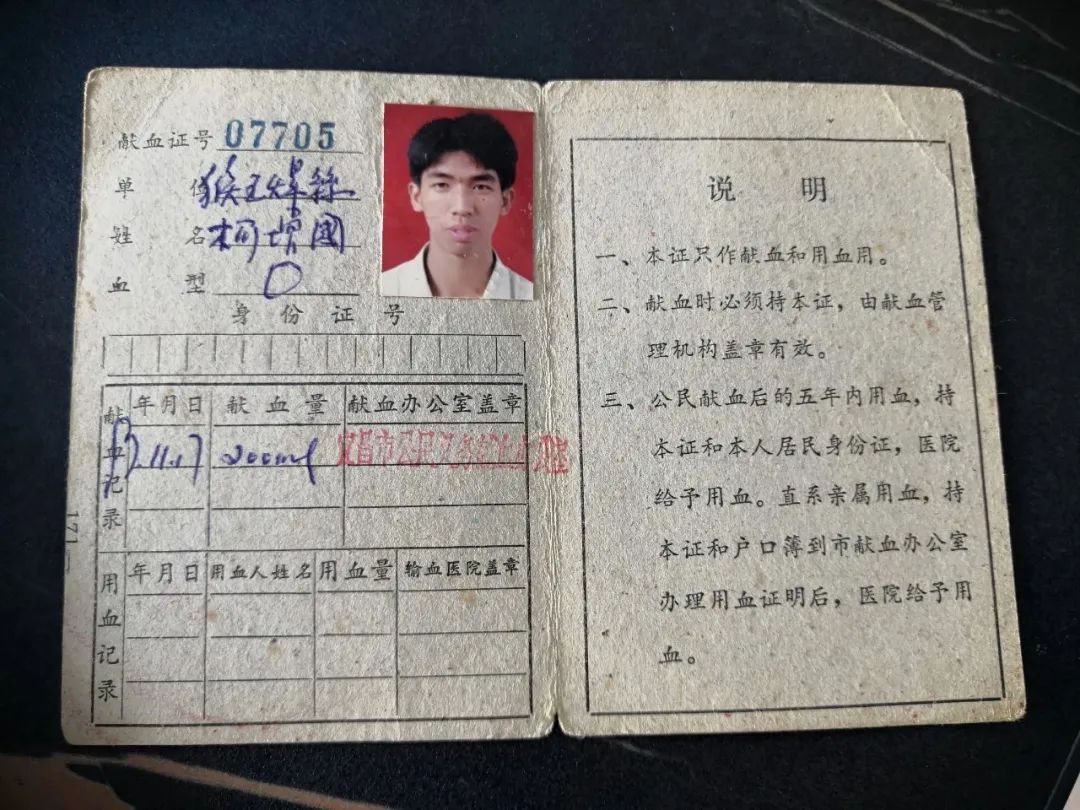 献血证号 07705
单位
姓名 柯增国
血型 O
身份证号
献血记录
年月日 献血量 献血办公室盖章
200ml
用血记录
年月日 用血人姓名 用血量 输血医院盖章
说明
一、本证只作献血和用血用。
二、献血时必须持本证，由献血管
理机构盖章有效。
三、公民献血后的五年内用血，持
本证和本人居民身份证，医院
给予用血。直系亲属用血，持
本证和户口簿到市献血办公室
办理用血证明后，医院给予用
血。